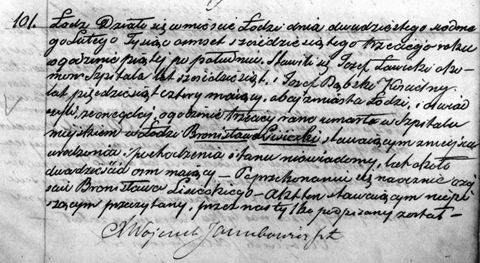 101. Łódź. Działo się w mieście Łodzi dnia dwudziestego siódme
go Lutego Tysiąc ośmset sześćdziesiątego trzeciego roku
o godzinie piątej po południu. Stawili się Józef Ławicki Eko
nom Szpitala lat sześćdziesiąt, i Józef Dąbski
lat pięćdziesiąt cztery mający, obaj z miasta Łodzi, i oświad
czyli, że onegdaj, o godzinie trzeciej rano umarł w Szpitalu
miejskim w Łodzi Bronisław Liwiczki, stawającym z miejsca
urodzenia, pochodzenia i stanu niewiadomy, lat około
dwadzieścia ośm mający – Po przekonaniu się naocznie o zej
ściu Bronisława – Akt ten stawającym niepi
szącym przeczytany, przez nas tylko podpisany został –
X Wojciech Jakubowicz